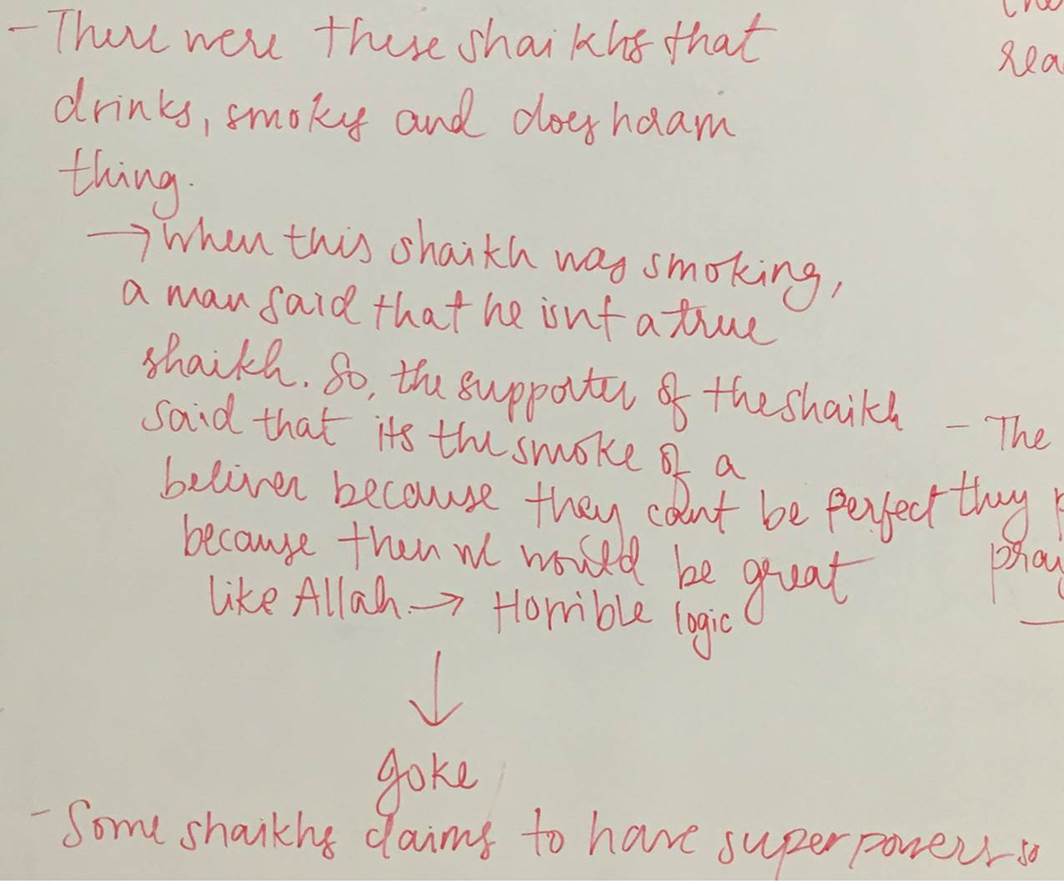 - There were these shaikhs that
drinks, smokes and does haram
thing.
→ When this shaikh was smoking,
a man said that he isnt a true
shaikh. So, the supporter of the shaikh
said that its the smoke of a
beliver because they cant be perfect
because then we would be great
like Allah. → Horrible logic
↓
goke
- Some shaikhs claims to have superpowers so
- The
they
pray